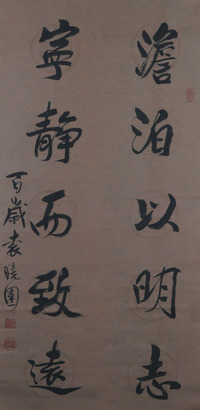 澹泊以明志
寧靜而致遠
百歲袁曉園